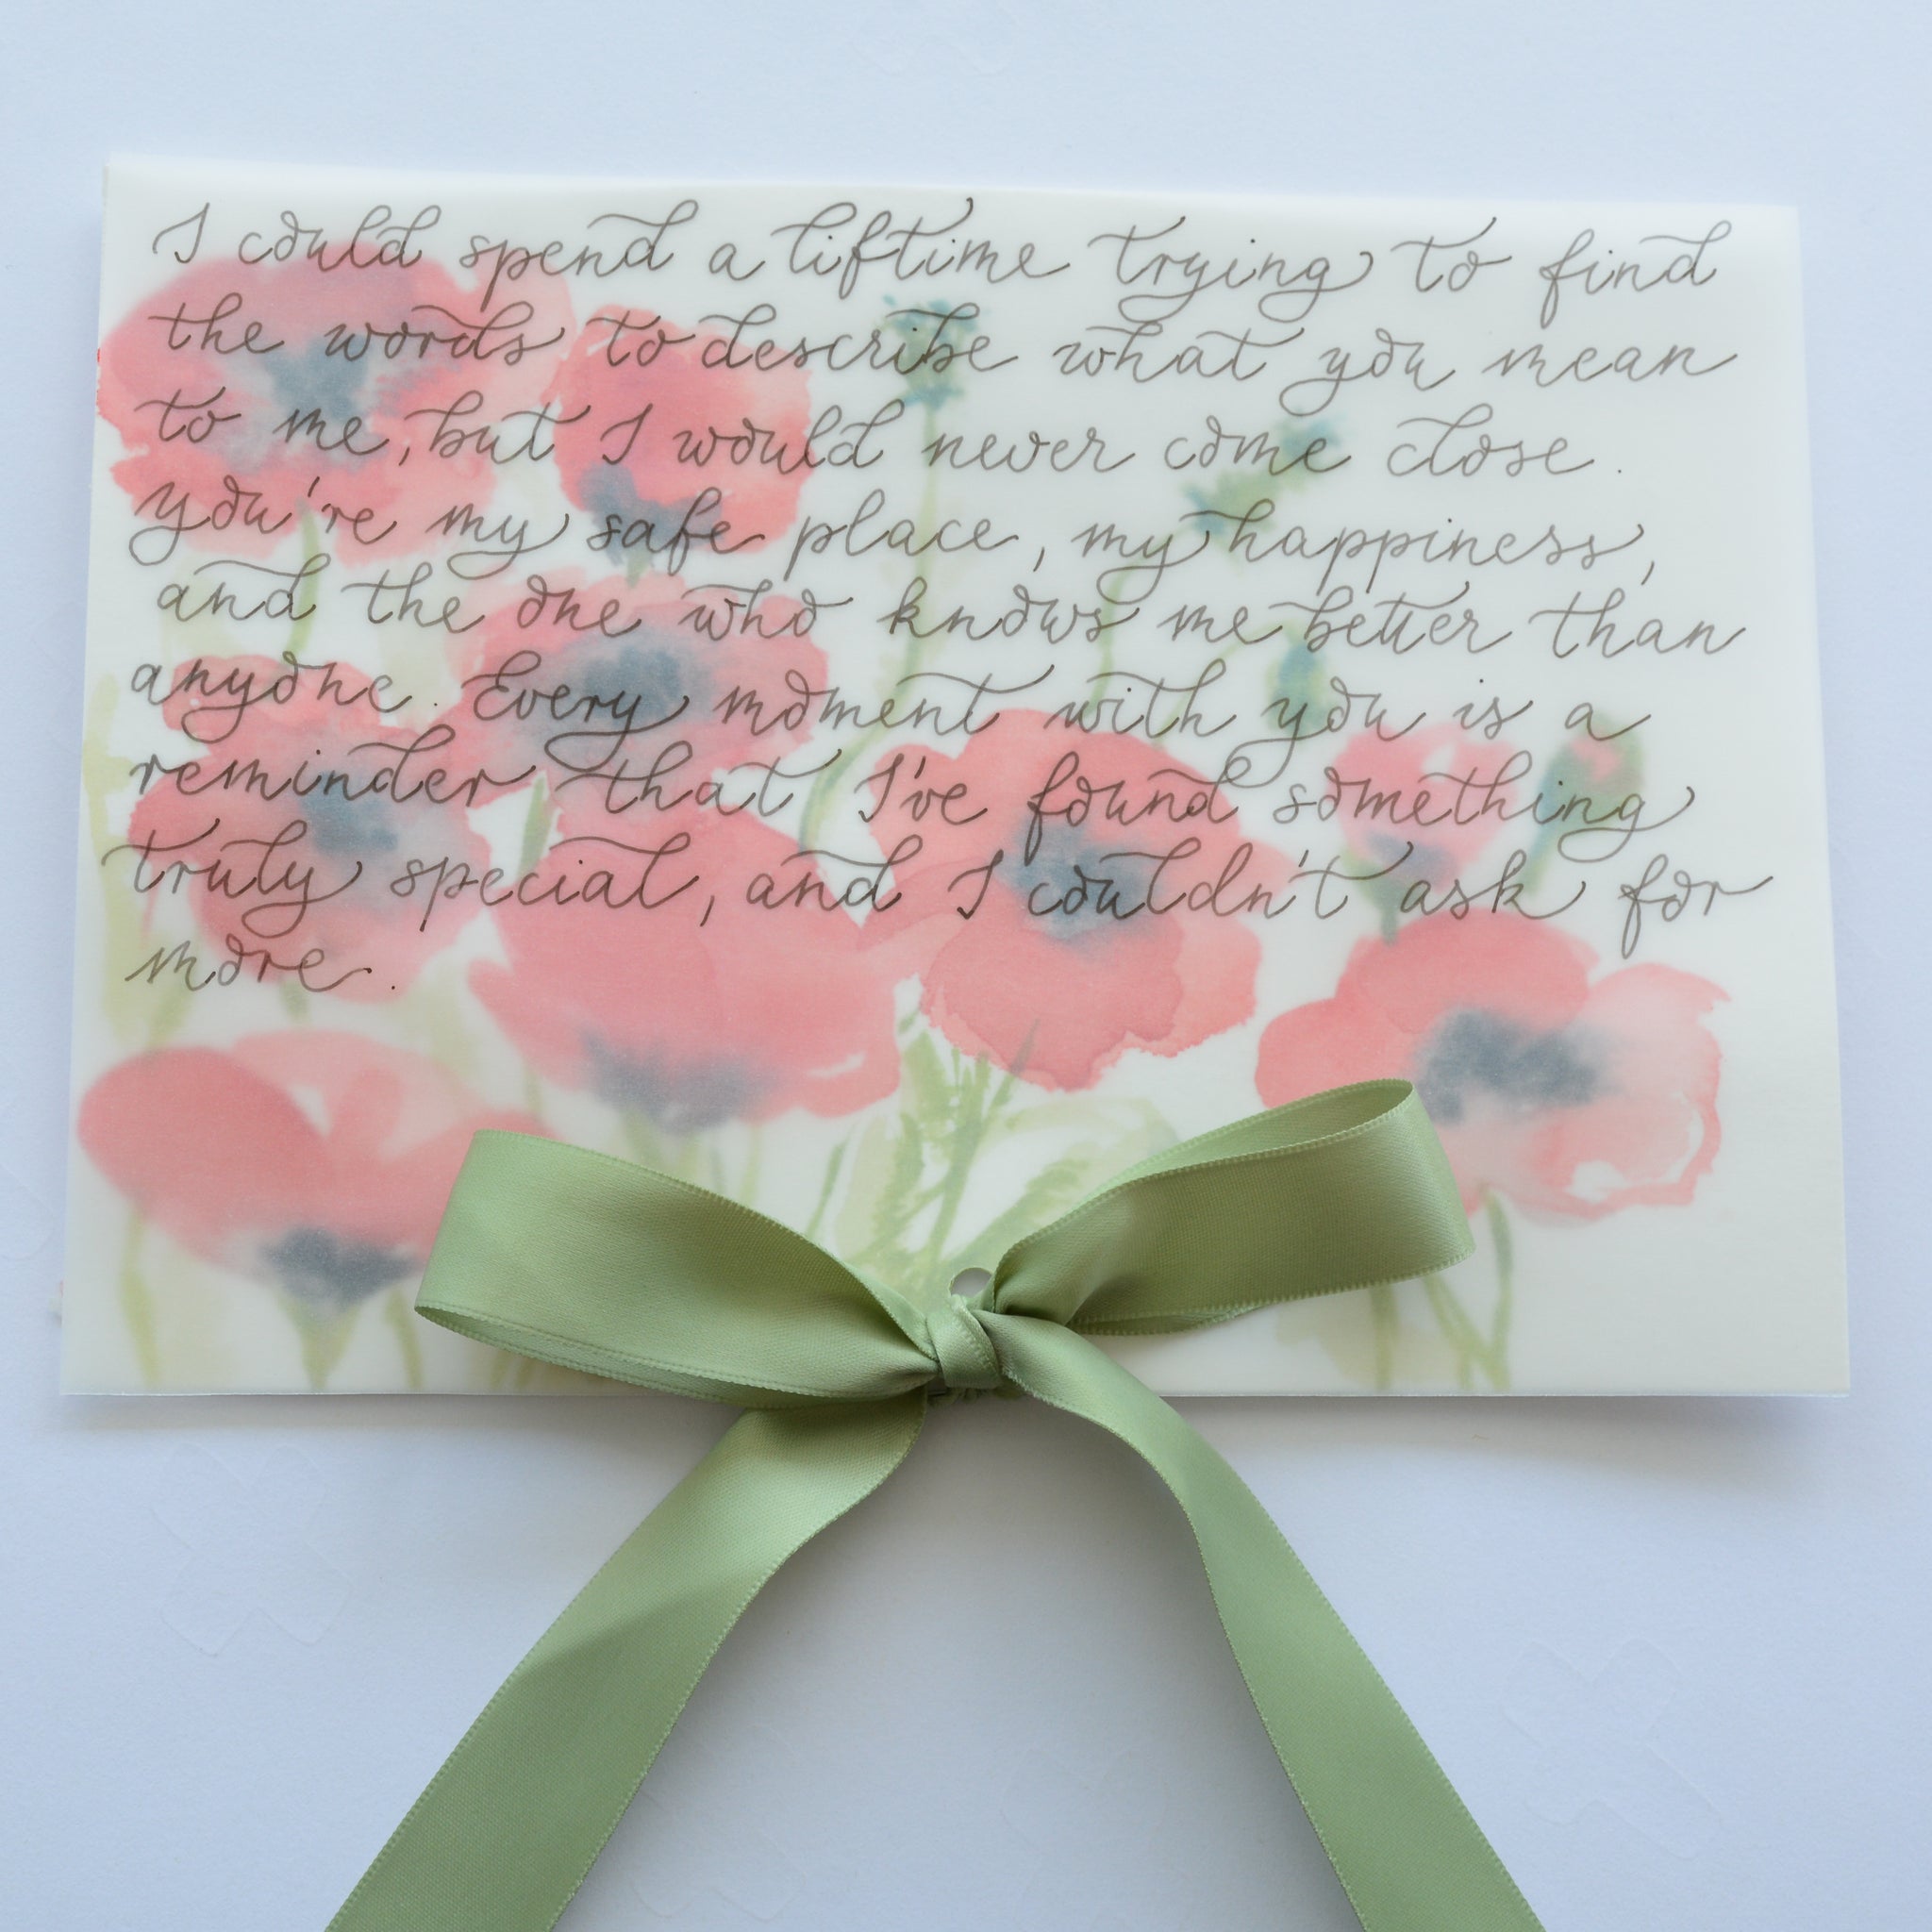 I could spend a liftime trying to find
the words to describe what you mean
to me, but I would never come close.
you're my safe place, my happiness,
and the one who knows me better than
anyone. Every moment with you is a
reminder that I've found something
truly special, and I couldn't ask for
more.